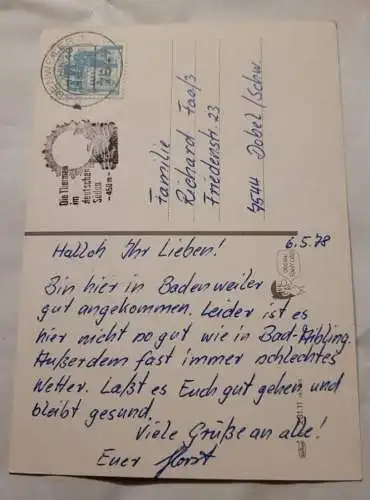 Die Thermen
im
deutschen
Süden
- 450 m -
Familie
Richard Faaß
Friedenstr. 23
7544 Dobel/Schw.
Halloh Ihr Lieben!
6.5.78
Bin hier in Badenweiler
gut angekommen. Leider ist es
hier nicht so gut wie in Bad-Aibling.
Außerdem fast immer schlechtes
Wetter. Laßt es Euch gut gehen und
bleibt gesund.
Viele Grüße an alle!
Euer Horst